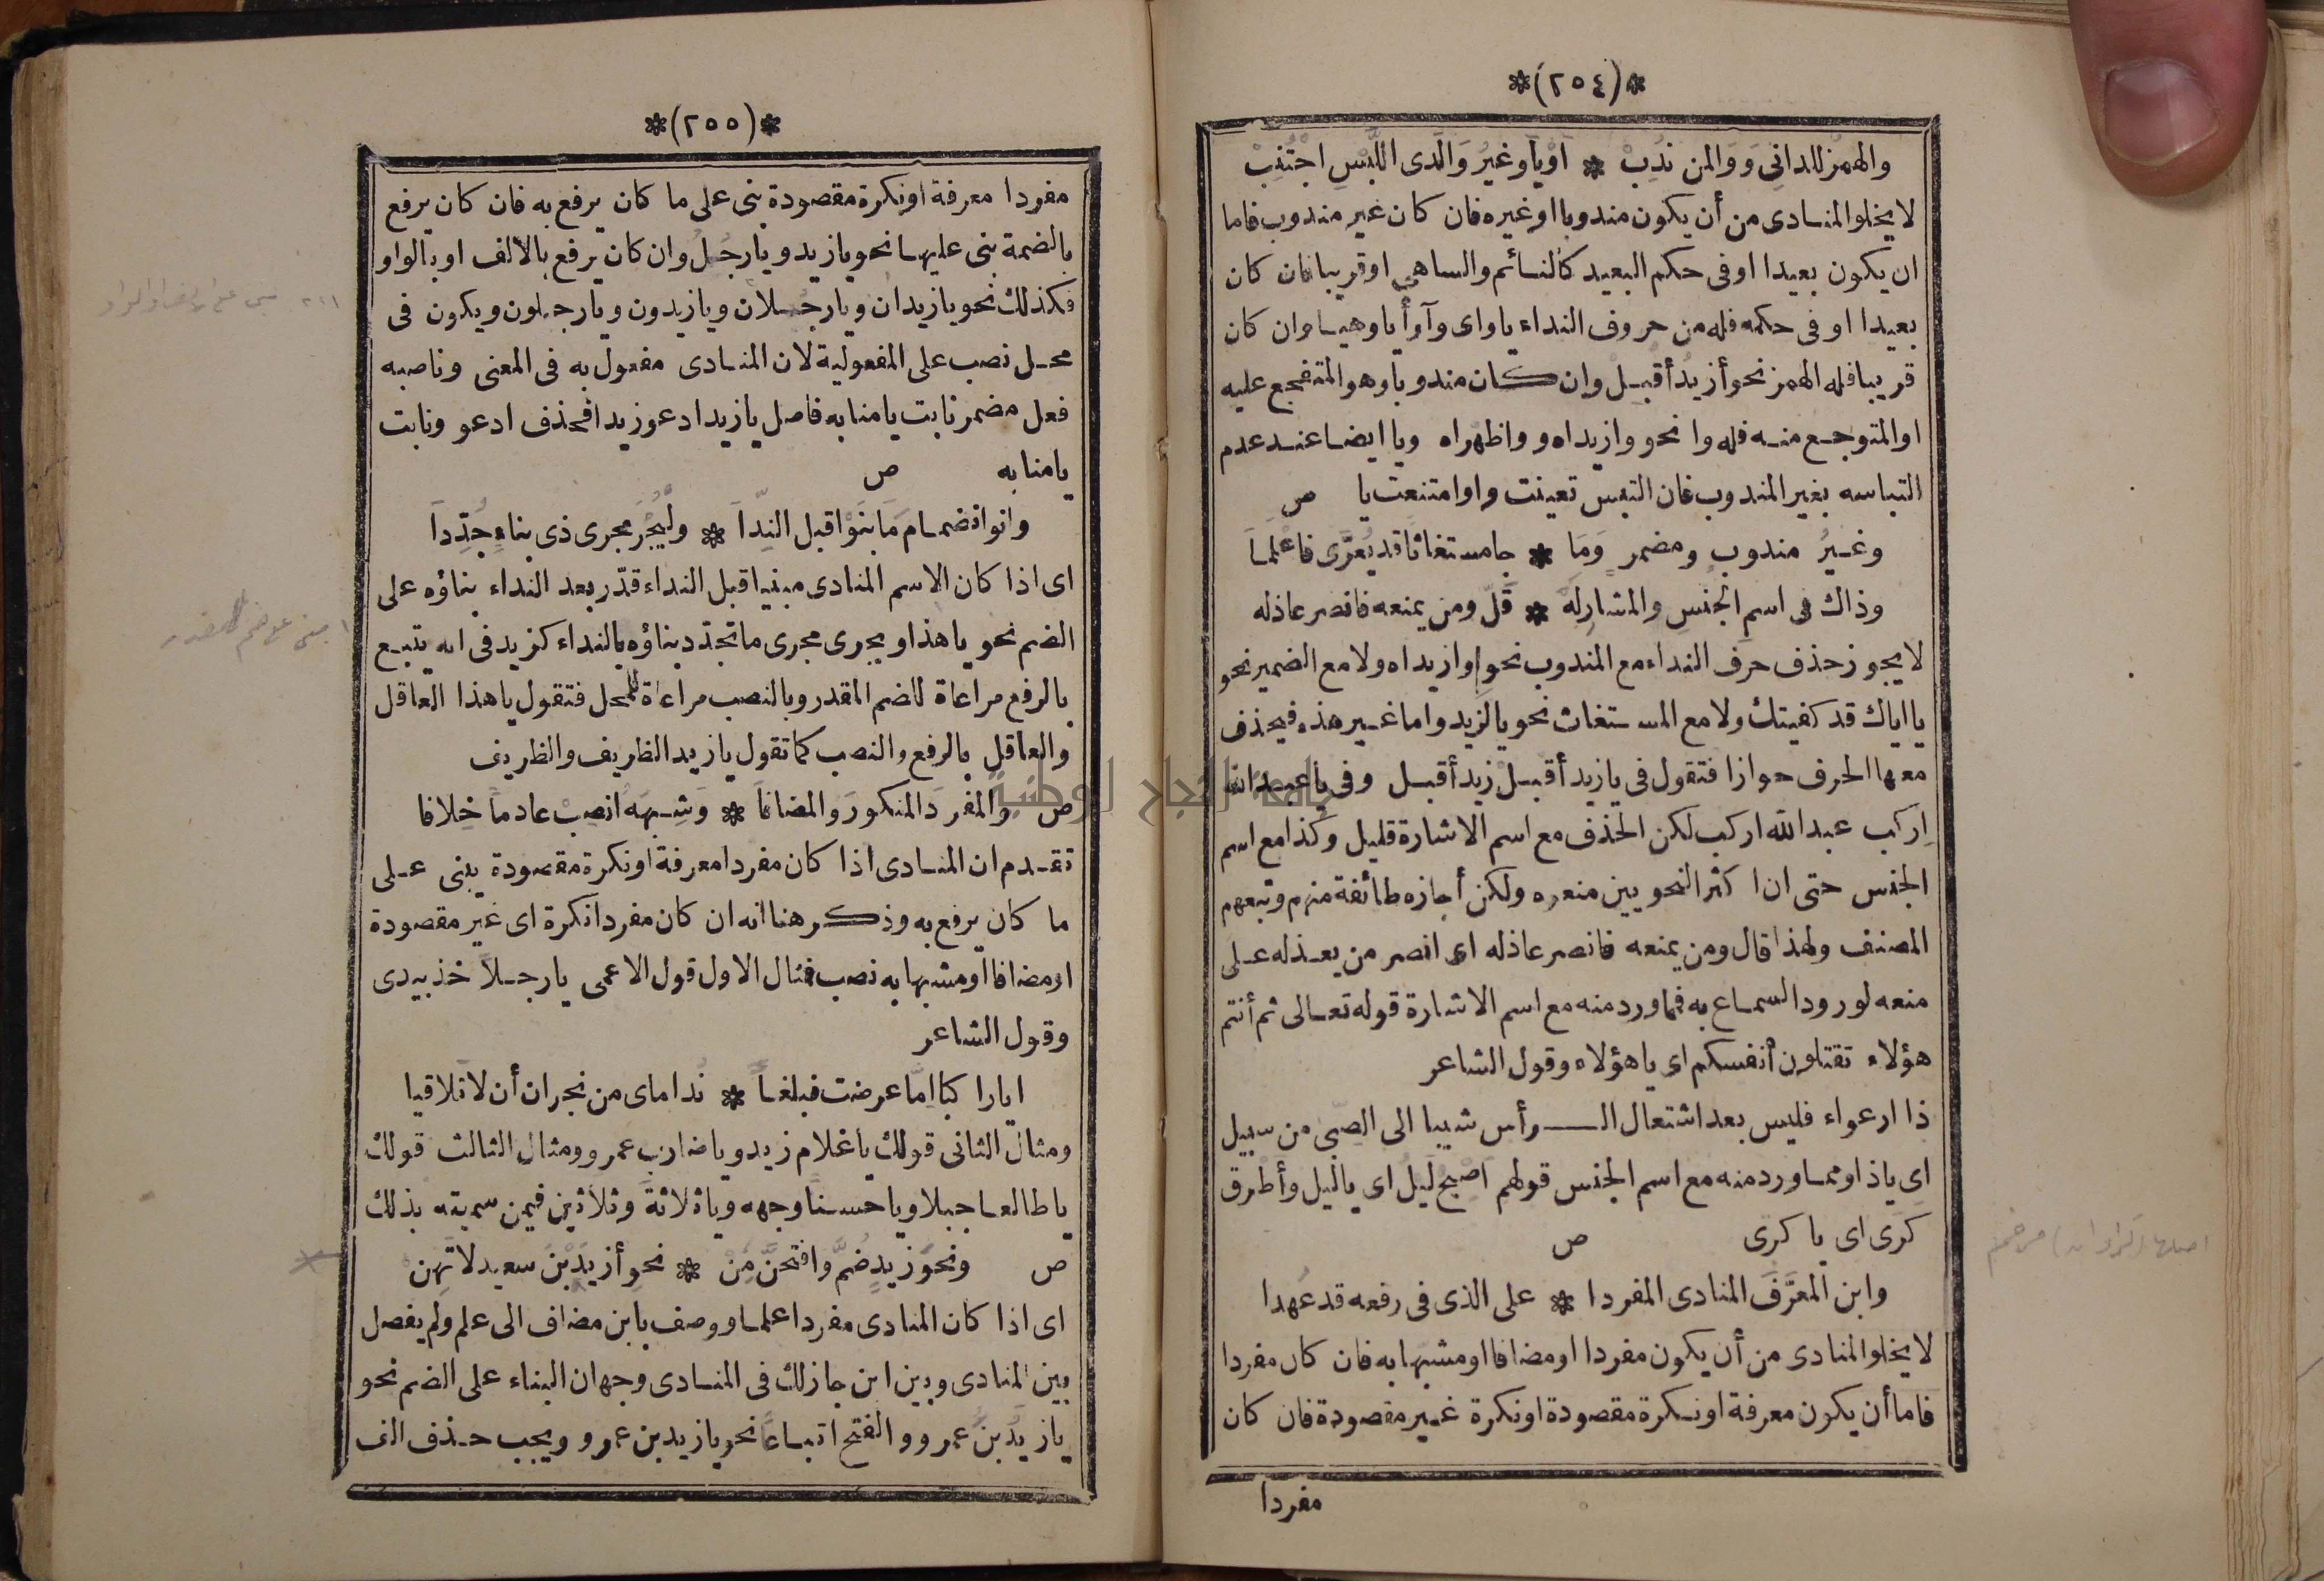 *(٢٥٤)*
والهمز للداني ووا لمن ندب * أو يا وغير وا لدى اللبس اجتنب
لا يخلو المنادى من أن يكون مندوبا او غيره فان كان غير مندوب فاما
ان يكون بعيدا او فى حكم البعيد كالنائم والساهى او قريبا فان كان
بعيدا او فى حكمه فله من حروف النداء يا واى وآ وأيا وهيا وان كان
قريبا فله الهمز نحو أزيد أقبل وان كان مندوبا وهو المتفجع عليه
او المتوجع منه فله وا نحو وازيداه وواظهراه ويا ايضا عند عدم
التباسه بغير المندوب فان التبس تعينت وا وامتنعت يا ص
وغير مندوب ومضمر وما * جا مستغاثا قد يعرى فاعلما
وذاك فى اسم الجنس والمشار له * قل ومن يمنعه فانصر عاذله
لا يجوز حذف حرف النداء مع المندوب نحو وازيداه ولا مع الضمير نحو
يا اياك قد كفيتك ولا مع المستغاث نحو يا لزيد واما غير هذه فيحذف
معها الحرف جوازا فتقول فى يا زيد أقبل زيد أقبل وفى يا عبد الله
اركب عبد الله اركب لكن الحذف مع اسم الاشارة قليل وكذا مع اسم
الجنس حتى ان اكثر النحويين منعوه ولكن أجازه طائفة منهم وتبعهم
المصنف ولهذا قال ومن يمنعه فانصر عاذله اى انصر من يعذله على
منعه لورود السماع به فمما ورد منه مع اسم الاشارة قوله تعالى ثم أنتم
هؤلاء تقتلون أنفسكم اى يا هؤلاء وقول الشاعر
ذا ارعواء فليس بعد اشتعال الـرأس شيبا الى الصبى من سبيل
اى ياذا ومما ورد منه مع اسم الجنس قولهم اصبح ليل اى يا ليل وأطرق
كرى اى يا كرى ص
وابن المعرف المنادى المفردا * على الذى فى رفعه قد عهدا
لا يخلو المنادى من أن يكون مفردا او مضافا او مشبها به فان كان مفردا
فاما أن يكون معرفة او نكرة مقصودة او نكرة غير مقصودة فان كان
مفردا
*(٢٥٥)*
مفردا معرفة او نكرة مقصودة بنى على ما كان يرفع به فان كان يرفع
بالضمة بنى عليها نحو يا زيد ويا رجل وان كان يرفع بالالف او بالواو
فكذلك نحو يا زيدان ويا رجلان ويا زيدون ويا رجيلون ويكون فى
محل نصب على المفعولية لان المنادى مفعول به فى المعنى وناصبه
فعل مضمر نابت يا منابه فاصل يا زيد ادعو زيدا فحذف ادعو ونابت
يا منابه ص
وانو انضمام ما بنوا قبل الندا * وليجر مجرى ذى بناء جددا
اى اذا كان الاسم المنادى مبنيا قبل النداء قدر بعد النداء بناؤه على
الضم نحو يا هذا ويجرى مجرى ما تجدد بناؤه بالنداء كزيد فى انه يتبع
بالرفع مراعاة للضم المقدر وبالنصب مراعاة للمحل فتقول يا هذا العاقل
والعاقل بالرفع والنصب كما تقول يا زيد الظريف والظريف
ص والمفرد المنكور والمضافا * وشبهه انصب عادما خلافا
تقدم ان المنادى اذا كان مفردا معرفة او نكرة مقصودة يبنى على
ما كان يرفع به وذكر هنا انه ان كان مفردا نكرة اى غير مقصودة
او مضافا او مشبها به نصب فمثال الاول قول الاعمى يا رجلا خذ بيدى
وقول الشاعر
ايا راكبا اما عرضت فبلغا * نداماى من نجران أن لا تلاقيا
ومثال الثانى قولك يا غلام زيد ويا ضارب عمرو ومثال الثالث قولك
يا طالعا جبلا ويا حسنا وجهه ويا ثلاثة وثلاثين فيمن سميته بذلك
ص ونحو زيد ضم وافتحن من * نحو أزيد بن سعيد لا تهن
اى اذا كان المنادى مفردا علما ووصف بابن مضاف الى علم ولم يفصل
بين المنادى وبين ابن جاز لك فى المنادى وجهان البناء على الضم نحو
يا زيد بن عمرو والفتح اتباعا نحو يا زيد بن عمرو ويجب حذف الف
جامعة النجاح الوطنية